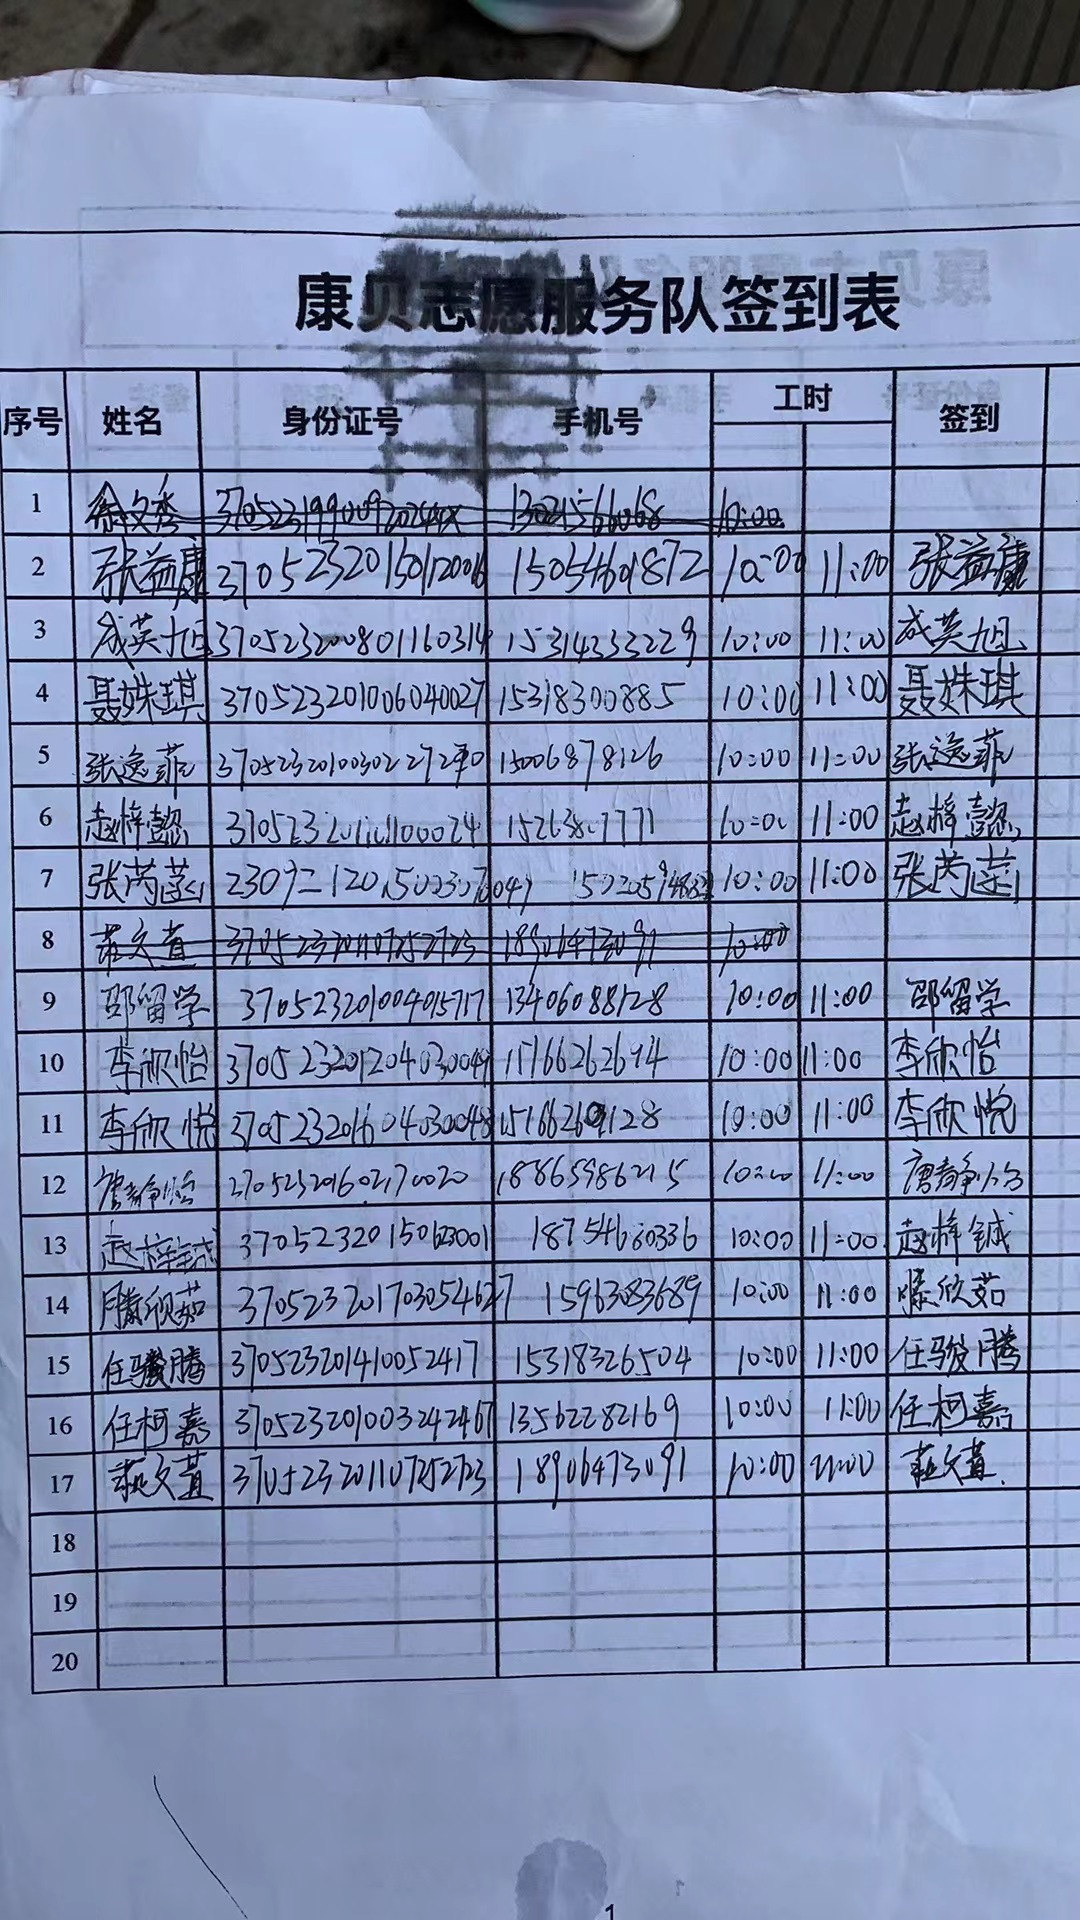 康贝志愿服务队签到表
序号 姓名 身份证号 手机号 工时 签到
1 徐文秀 10:00
2 张益康 15054601872 10:00 11:00 张益康
3 成英旭 370523200801160314 15314233229 10:00 11:00 成英旭
4 聂姝琪 370523201006040027 15318300885 10:00 11:00 聂姝琪
5 张逸菲 15006878126 10:00 11:00 张逸菲
6 赵梓懿 10:00 11:00 赵梓懿
7 张芮菡 10:00 11:00 张芮菡
8 370523201107252723 18906473091 10:00
9 邵留学 370523201004015717 13406088128 10:00 11:00 邵留学
10 李欣怡 370523201204030049 15166262694 10:00 11:00 李欣怡
11 李欣悦 370523201604030048 10:00 11:00 李欣悦
12 唐静怡 370523201602170020 18865986215 10:00 11:00 唐静怡
13 赵梓铖 18754660336 10:00 11:00 赵梓铖
14 滕欣茹 370523201703054627 15963083689 10:00 11:00 滕欣茹
15 任骏腾 370523201410052417 15318326504 10:00 11:00 任骏腾
16 任柯嘉 370523201003242467 13562282169 10:00 11:00 任柯嘉
17 370523201107252723 18906473091 10:00 11:00
18
19
20
1